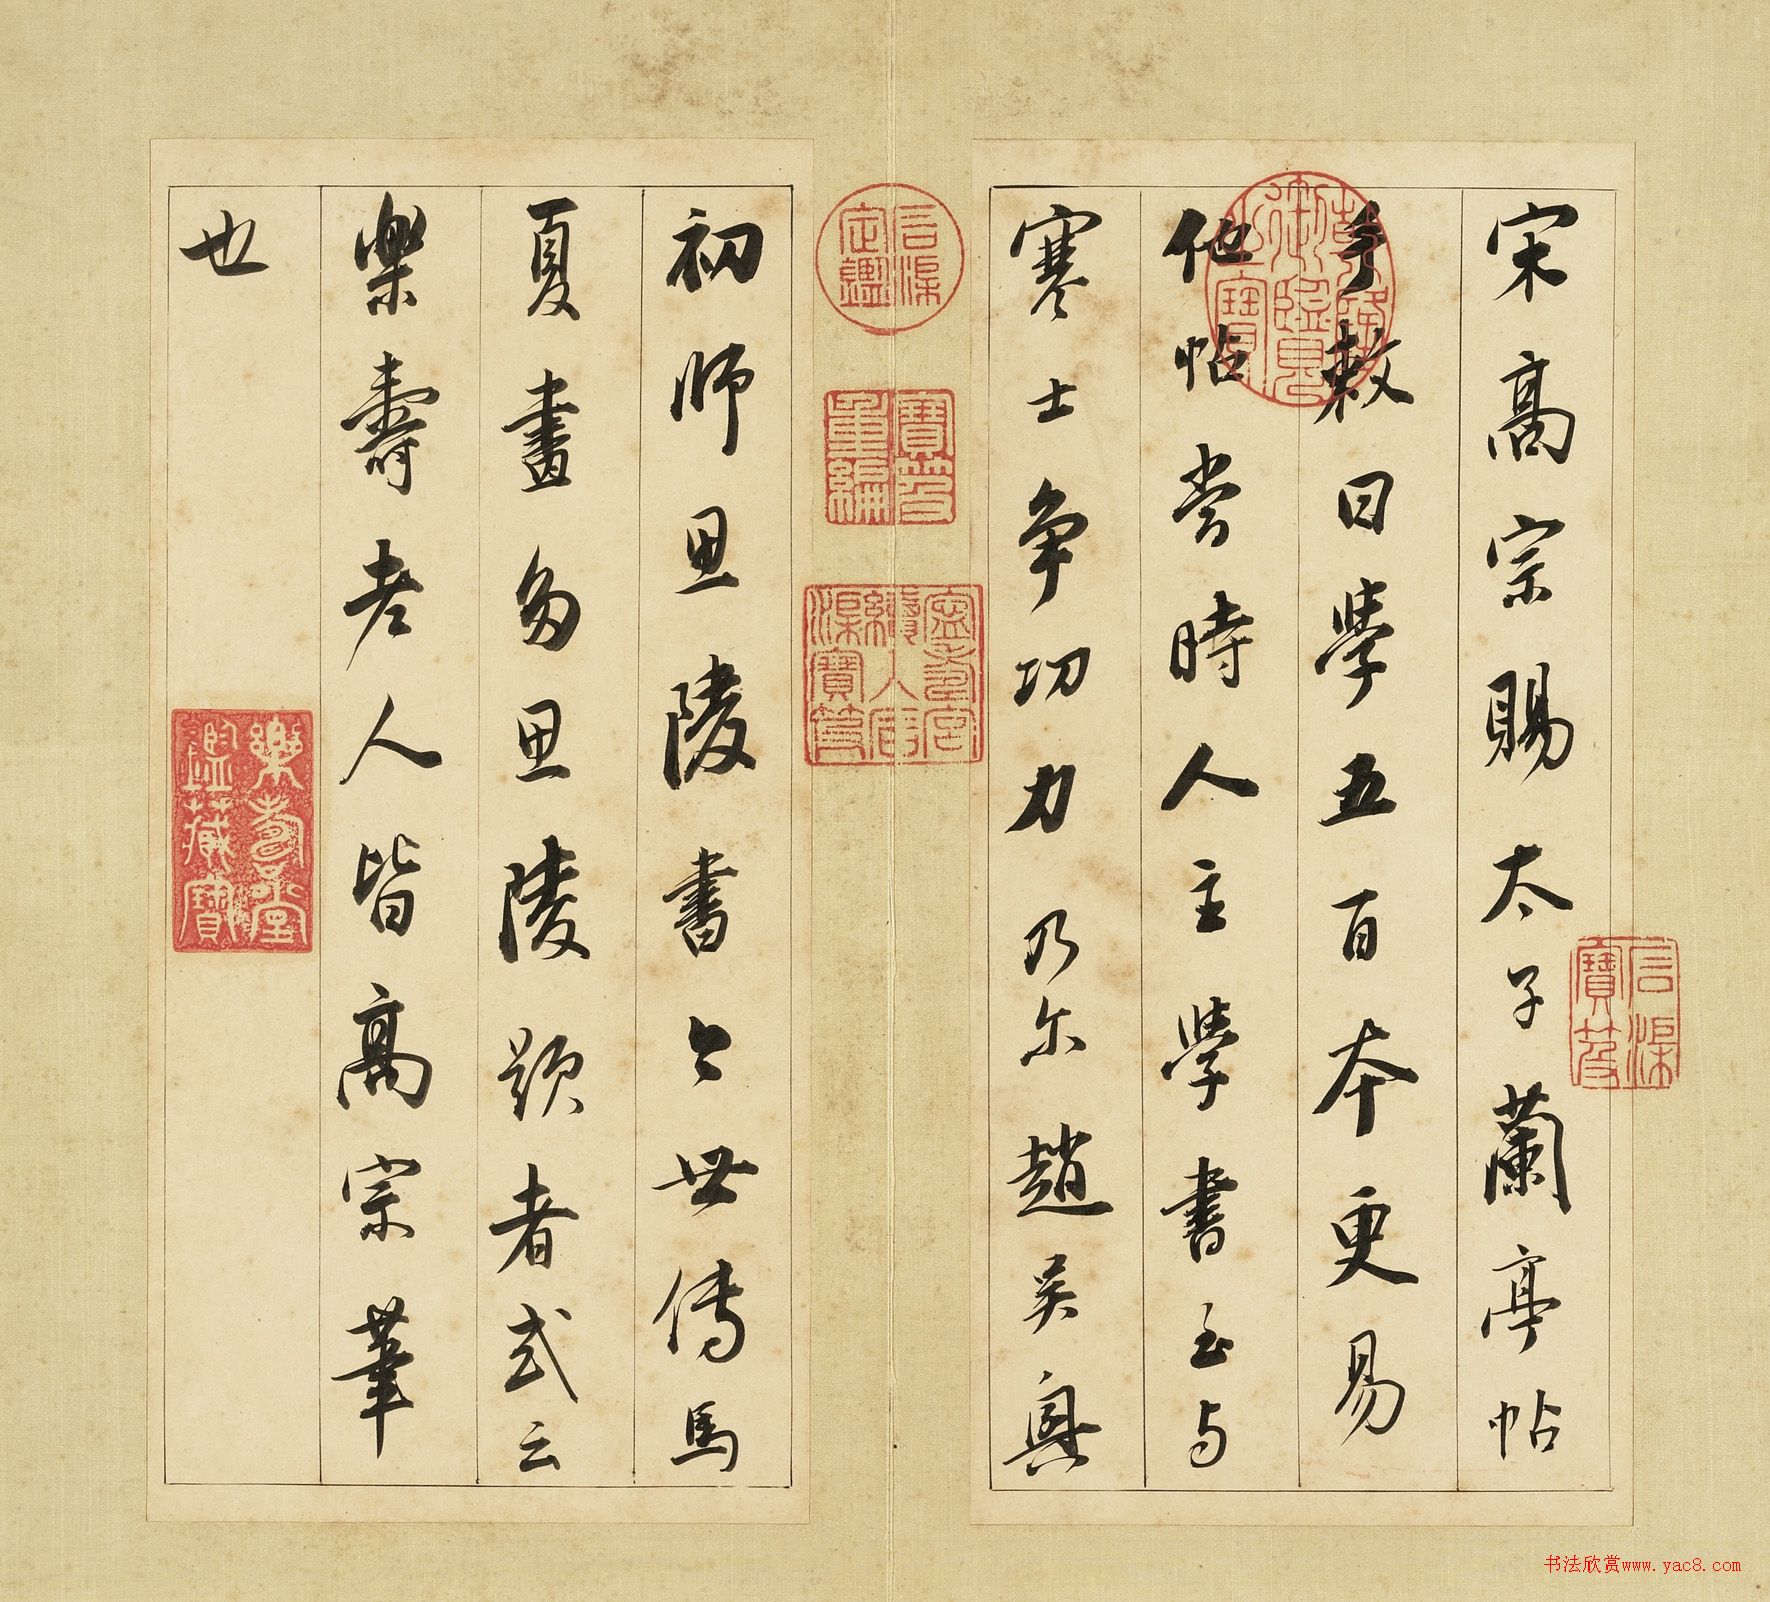 宋高宗賜太子蘭亭帖
手敕曰學五百本更易
他帖當時人主學書至与
寒士爭功力乃尔趙吳興
初師思陵書今世傳馬
夏畫多思陵題者或云
樂壽老人皆高宗筆
也
乾隆御覽之寶
石渠寶笈
石渠定鑑
寶笈重編
寧壽宮續入石渠寶笈
樂壽堂鑑藏寶
书法欣赏www.yac8.com